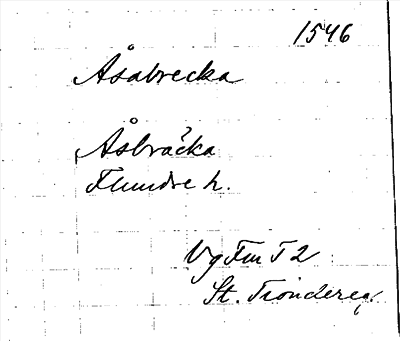 1546
Åsabrecka
Åsbräcka
Flundre h.
Vg Fm T 2
St. Tiondereg.